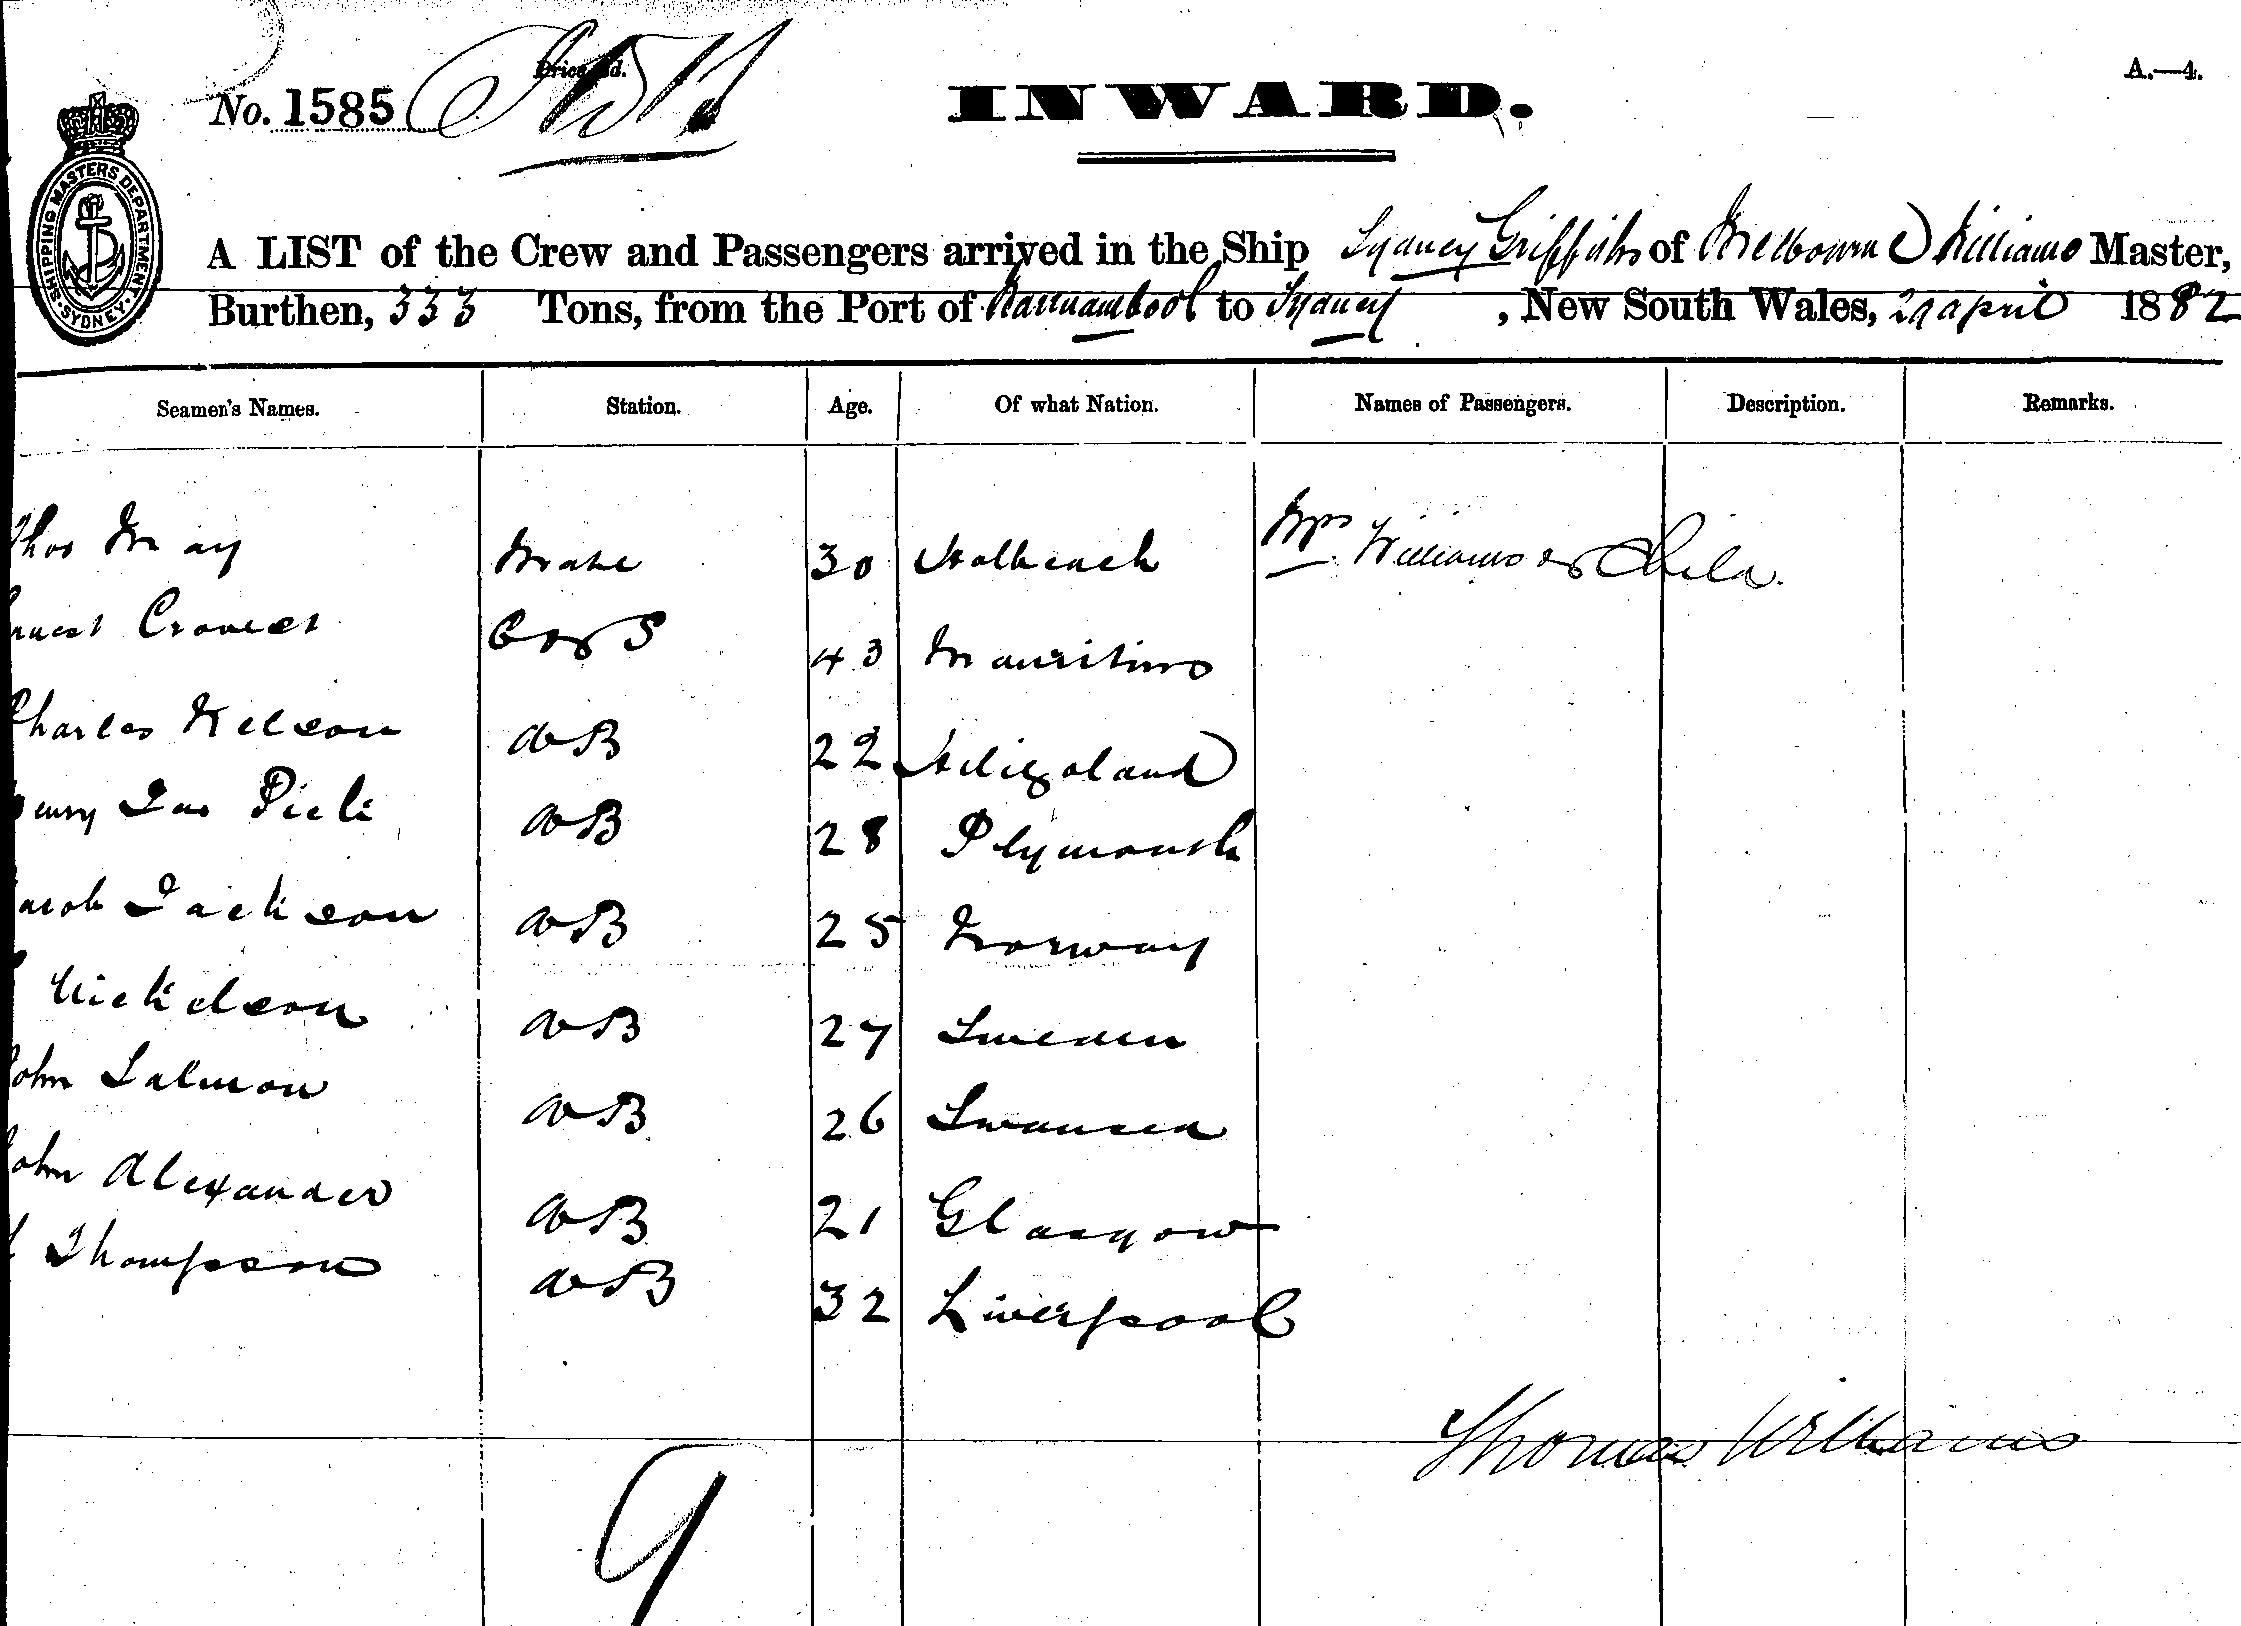 No. 1585
INWARD.
A.—4.
SHIPPING MASTERS DEPARTMENT. SYDNEY.
A LIST of the Crew and Passengers arrived in the Ship Sydney Griffiths of Melbourne Williams Master,
Burthen, 333 Tons, from the Port of Warrnambool to Sydney , New South Wales, 29 april 1882
Seamen's Names. Station. Age. Of what Nation. Names of Passengers. Description. Remarks.
Thos May Mate 30 Holbeach Mrs Williams & Child.
C & S 43 Mauritius
Charles Nelson AB 22 Heligoland
Henry Jas AB 28 Plymouth
Jacob Jackson AB 25 Norway
AB 27 Sweden
John Salmon AB 26 Swansea
John Alexander AB 21 Glasgow
Thompson AB 32 Liverpool
Thomas Williams
9